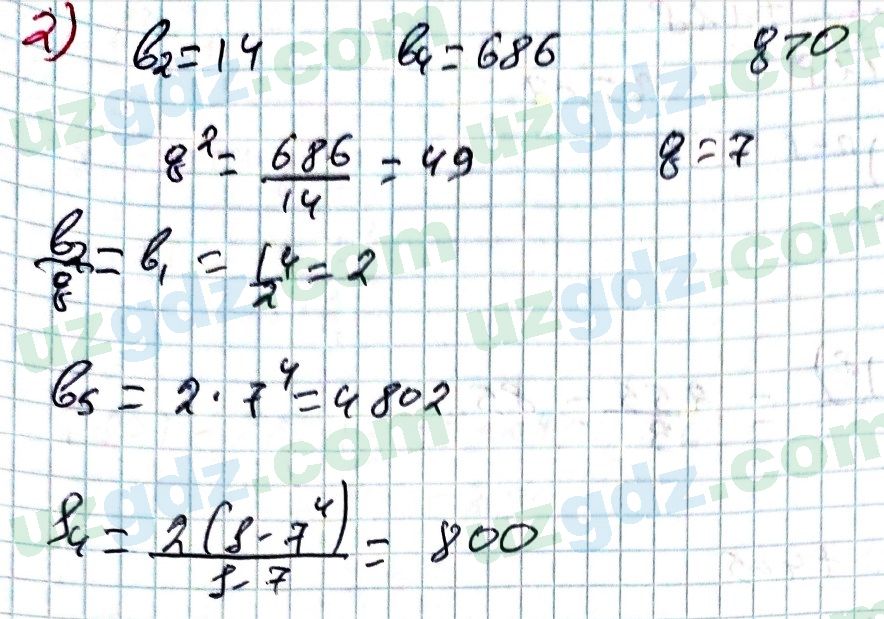 2) b₂ = 14 b₄ = 686 q > 0
q² = 686/14 = 49 q = 7
b₂/q = b₁ = 14/2 = 2
b₅ = 2 · 7⁴ = 4802
S₄ = 2(1 - 7⁴)/1 - 7 = 800
uzgdz.com
uzgdz.com
uzgdz.com
uzgdz.com
uzgdz.com
uzgdz.com